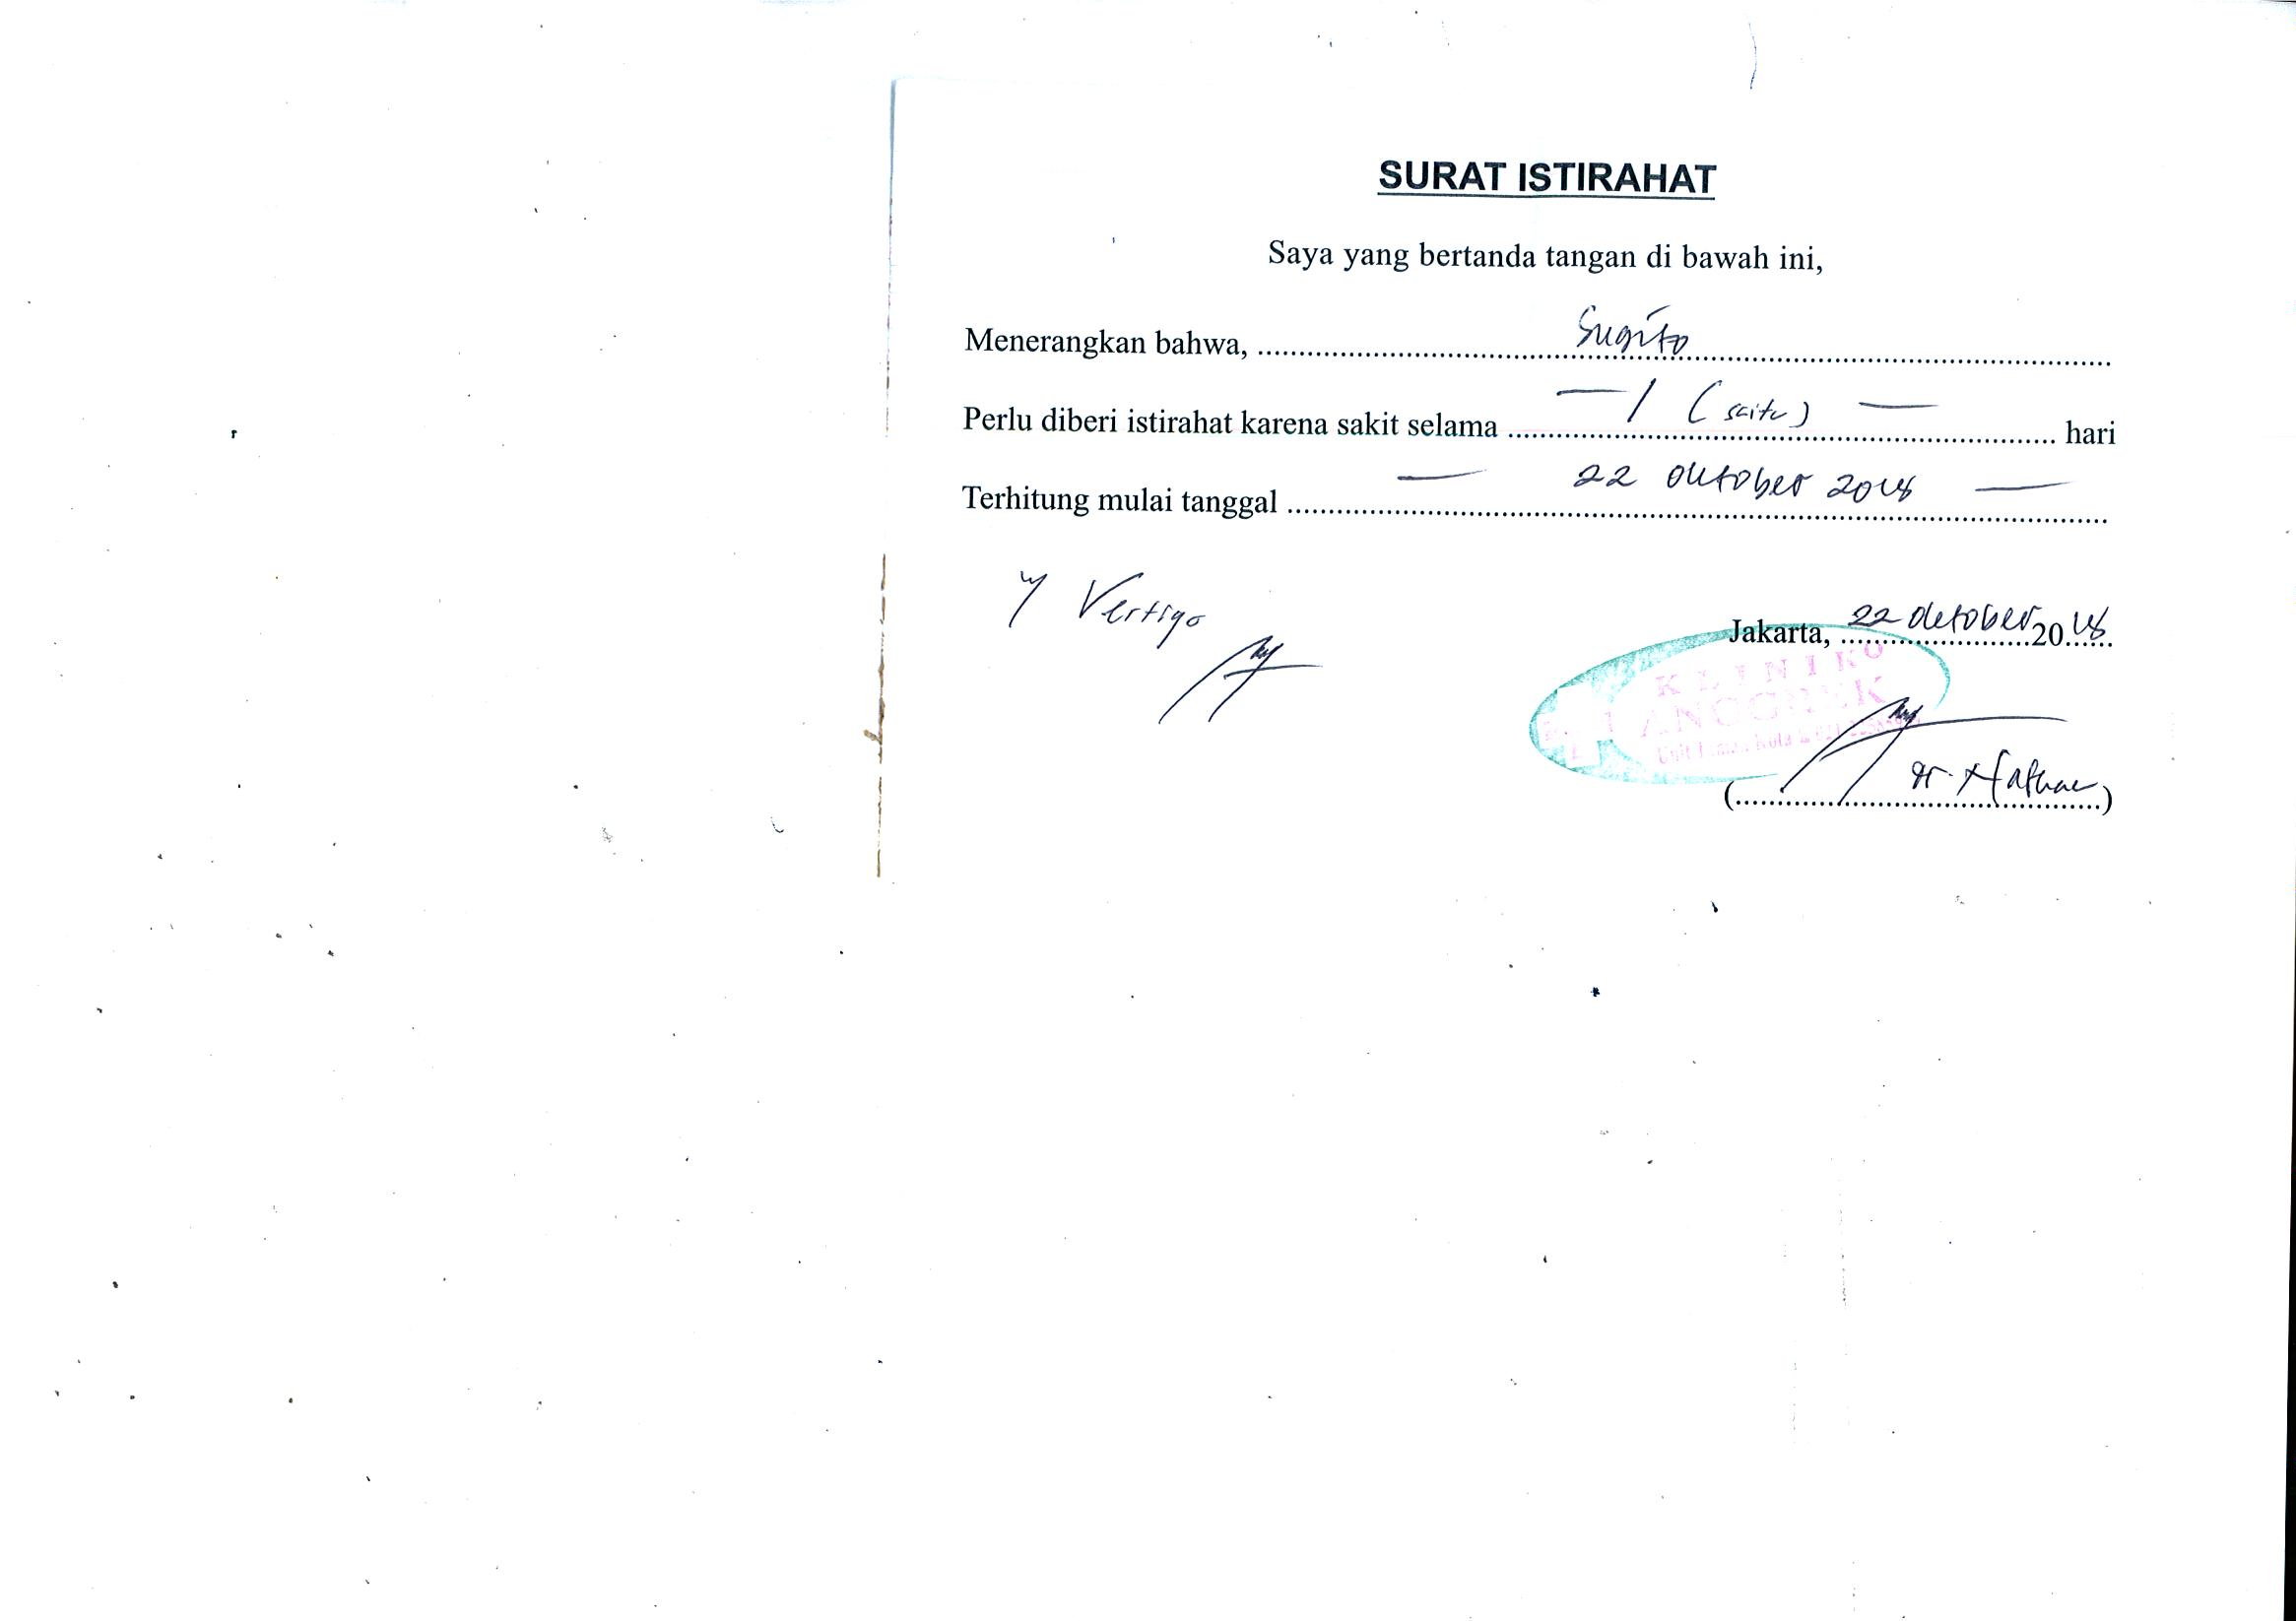 SURAT ISTIRAHAT
Saya yang bertanda tangan di bawah ini,
Menerangkan bahwa, Sugito
Perlu diberi istirahat karena sakit selama — 1 (satu) — hari
Terhitung mulai tanggal — 22 Oktober 2018 —
Vertigo
Jakarta, 22 Oktober 2018
KLINIK
ANGGREK
(dr.)